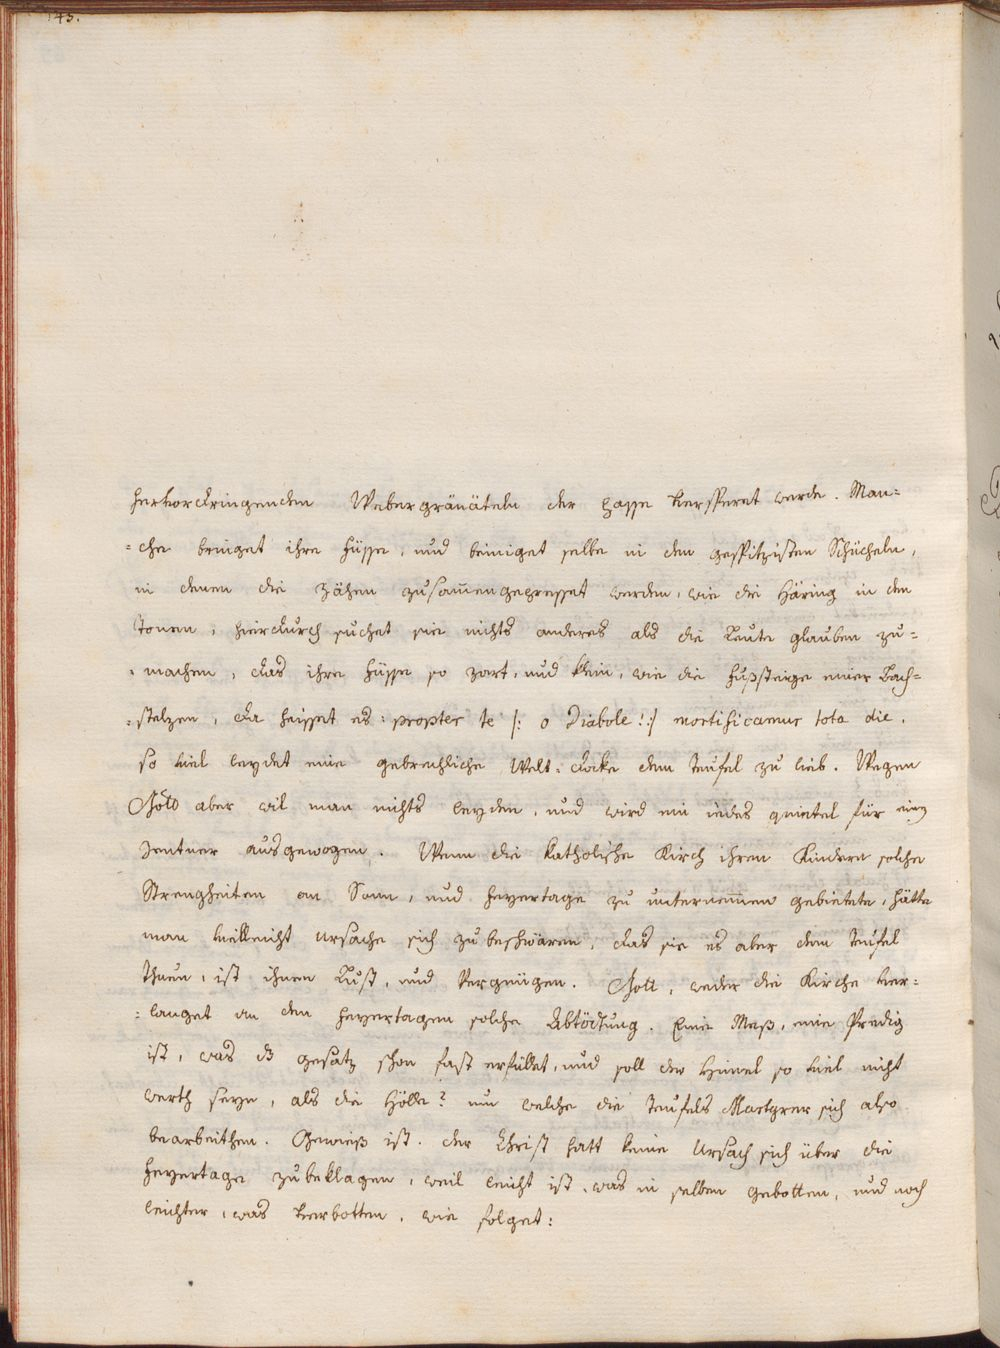 143.
hervordringenden Weber gränäteln der passe versperet werde. Man=
=che bringet ihre Füsse, und beiniget selbe in den gespitzisten Schücheln,
in denen die Zähen zusam̄engepresset werden, wie die Häring in den
Tonen, hierdurch suchet sie nichts anderes als die Leute glauben zu=
=machen, das ihre Füsse so zart, und klein, wie die Fußsteige einer Bach=
=stelzen, da heisset es: propter te /: o Diabole!:/ mortificamur tota die.
so viel leydet eine gebrechliche Welt=docke dem Teufel zu lieb. Wegen
Gott aber wil man nichts leyden, und wird ein iedes quintel für einen
Zentner ausgewogen. Wenn die katholische Kirch ihren Kindern solche
Strengheiten an Sonn, und Feyertage zu unternem̄en gebietete, hätte
man villeicht ursache sich zubeschwären, das sie es aber dem Teufel
thuen, ist ihnen Lust, und Vergnügen. Gott, weder die Kirche ver=
=langet an den Feyertagen solche Abtödtung. Eine Meß, eine Predig
ist, was dz gesatz schon fast erfüllet, und soll der Him̄el so viel nicht
werth seyn, als die Hölle? um welche die Teufels Martyrer sich also
bearbeithen. Gewieß ist. der Christ hatt keine Ursach sich über die
Feyertage zubeklagen, weil leicht ist, was in selben gebotten, und noch
leichter, was verbotten, wie folget: